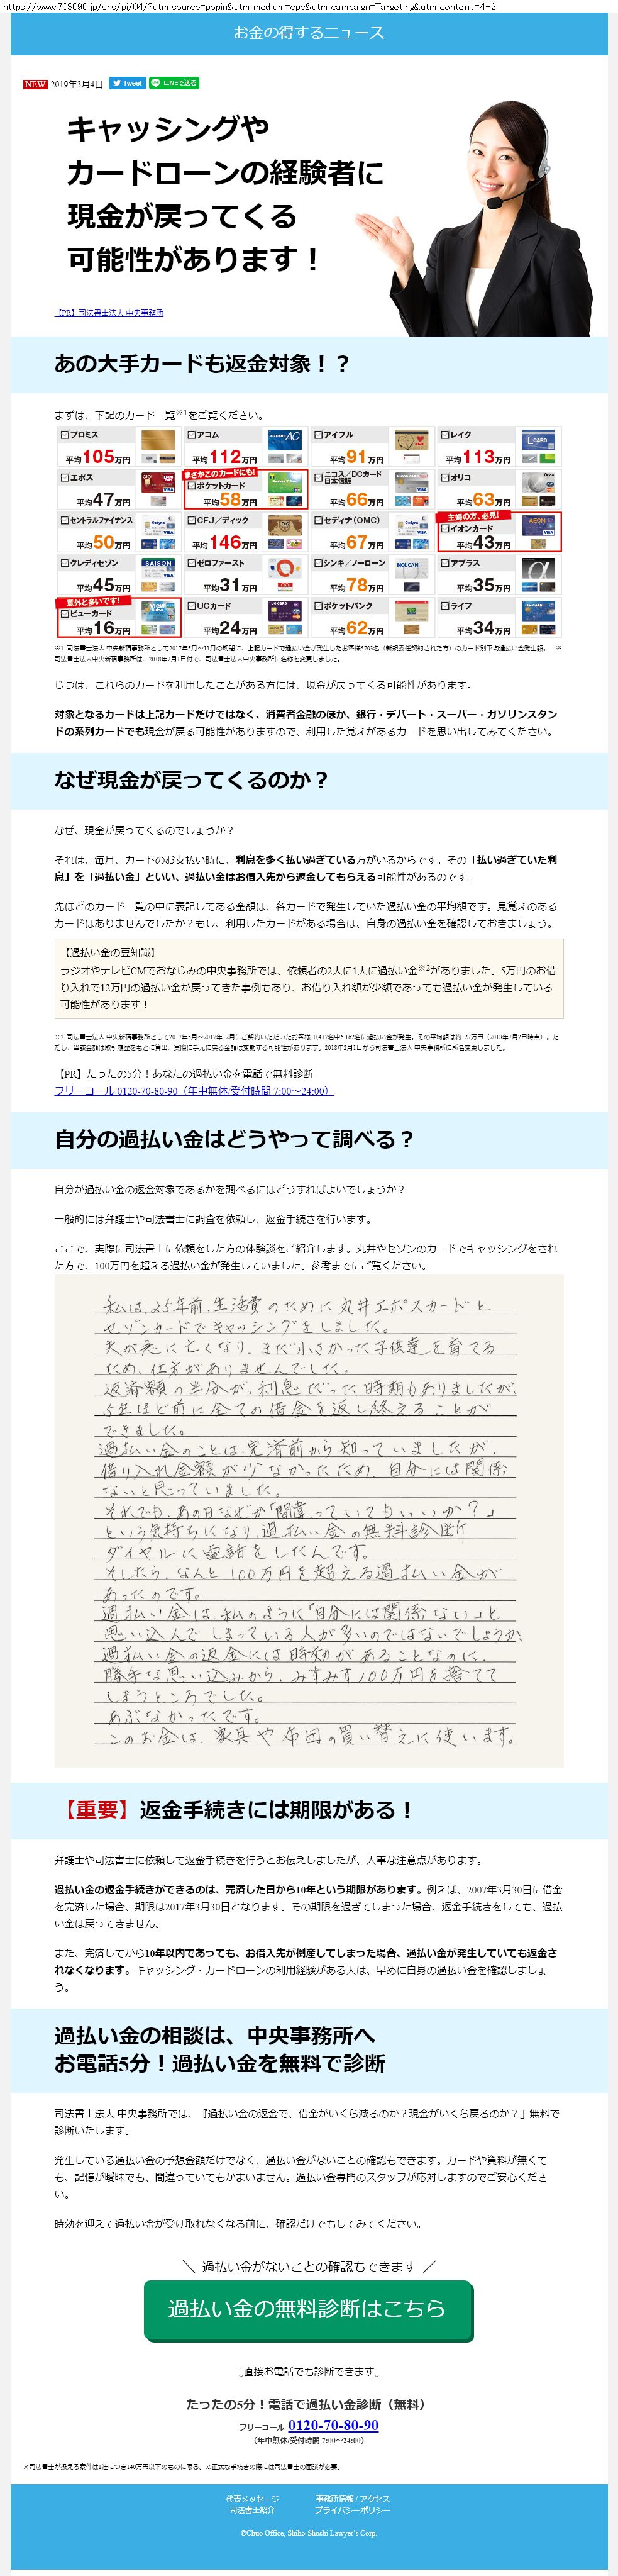 https://www.708090.jp/sns/pi/04/?utm_source=popin&utm_medium=cpc&utm_campaign=Targeting&utm_content=4-2
お金の得するニュース
NEW 2019年3月4日 Tweet LINEで送る
キャッシングや
カードローンの経験者に
現金が戻ってくる
可能性があります！
【PR】司法書士法人 中央事務所
あの大手カードも返金対象！？
まずは、下記のカード一覧※1をご覧ください。
プロミス 平均105万円
アコム 平均112万円
アイフル 平均91万円
レイク 平均113万円
エポス 平均47万円
まさかこのカードにも!
ポケットカード 平均58万円
ニコス／DCカード
日本信販 平均66万円
オリコ 平均63万円
セントラルファイナンス 平均50万円
CFJ／ディック 平均146万円
セディナ（OMC） 平均67万円
主婦の方、必見!
イオンカード 平均43万円
クレディセゾン 平均45万円
ゼロファースト 平均31万円
シンキ／ノーローン 平均78万円
アプラス 平均35万円
意外と多いです!
ビューカード 平均16万円
UCカード 平均24万円
ポケットバンク 平均62万円
ライフ 平均34万円
※1. 司法■士法人 中央新宿事務所として2017年5月～11月の期間に、上記カードで過払い金が発生したお客様5703名（新規委任契約された方）のカード別平均過払い金発生額。 ※
司法■士法人中央新宿事務所は、2018年2月1日付で、司法■士法人中央事務所に名称を変更しました。
じつは、これらのカードを利用したことがある方には、現金が戻ってくる可能性があります。
対象となるカードは上記カードだけではなく、消費者金融のほか、銀行・デパート・スーパー・ガソリンスタン
ドの系列カードでも現金が戻る可能性がありますので、利用した覚えがあるカードを思い出してみてください。
なぜ現金が戻ってくるのか？
なぜ、現金が戻ってくるのでしょうか？
それは、毎月、カードのお支払い時に、利息を多く払い過ぎている方がいるからです。その「払い過ぎていた利
息」を「過払い金」といい、過払い金はお借入先から返金してもらえる可能性があるのです。
先ほどのカード一覧の中に表記してある金額は、各カードで発生していた過払い金の平均額です。見覚えのある
カードはありませんでしたか？もし、利用したカードがある場合は、自身の過払い金を確認しておきましょう。
【過払い金の豆知識】
ラジオやテレビCMでおなじみの中央事務所では、依頼者の2人に1人に過払い金※2がありました。5万円のお借
り入れで12万円の過払い金が戻ってきた事例もあり、お借り入れ額が少額であっても過払い金が発生している
可能性があります！
※2. 司法■士法人 中央新宿事務所として2017年5月～2017年12月にご契約いただいたお客様10,417名中6,162名に過払い金が発生。その平均額は約127万円（2018年7月2日時点）。た
だし、当該金額は取引履歴をもとに算出、実際に手元に戻る金額は変動する可能性があります。2018年2月1日から司法■士法人 中央事務所に所名変更しました。
【PR】たったの5分！あなたの過払い金を電話で無料診断
フリーコール 0120-70-80-90（年中無休/受付時間 7:00～24:00）
自分の過払い金はどうやって調べる？
自分が過払い金の返金対象であるかを調べるにはどうすればよいでしょうか？
一般的には弁護士や司法書士に調査を依頼し、返金手続きを行います。
ここで、実際に司法書士に依頼をした方の体験談をご紹介します。丸井やセゾンのカードでキャッシングをされ
た方で、100万円を超える過払い金が発生していました。参考までにご覧ください。
私は、25年前、生活費のために丸井エポスカードと
セゾンカードでキャッシングをしました。
夫が急に亡くなり、まだ小さかった子供達を育てる
ため、仕方がありませんでした。
返済額の半分が、利息だった時期もありましたが、
5年ほど前に全ての借金を返し終えることが
できました。
過払い金のことは、完済前から知っていましたが、
借り入れ金額が少なかったため、自分には関係
ないと思っていました。
それでも、あの日なぜか「間違っていてもいいか？」
という気持ちになり、過払い金の無料診断
ダイヤルに電話をしたんです。
そしたら、なんと100万円を超える過払い金が
あったのです。
過払い金は、私のように「自分には関係ない」と
思い込んでしまっている人が多いのではないでしょうか、
過払い金の返金には時効があることなのに、
勝手な思い込みから、みすみす100万円を捨てて
しまうところでした。
あぶなかったです。
このお金は、家具や布団の買い替えに使います。
【重要】返金手続きには期限がある！
弁護士や司法書士に依頼して返金手続きを行うとお伝えしましたが、大事な注意点があります。
過払い金の返金手続きができるのは、完済した日から10年という期限があります。例えば、2007年3月30日に借金
を完済した場合、期限は2017年3月30日となります。その期限を過ぎてしまった場合、返金手続きをしても、過払
い金は戻ってきません。
また、完済してから10年以内であっても、お借入先が倒産してしまった場合、過払い金が発生していても返金さ
れなくなります。キャッシング・カードローンの利用経験がある人は、早めに自身の過払い金を確認しましょ
う。
過払い金の相談は、中央事務所へ
お電話5分！過払い金を無料で診断
司法書士法人 中央事務所では、『過払い金の返金で、借金がいくら減るのか？現金がいくら戻るのか？』無料で
診断いたします。
発生している過払い金の予想金額だけでなく、過払い金がないことの確認もできます。カードや資料が無くて
も、記憶が曖昧でも、間違っていてもかまいません。過払い金専門のスタッフが応対しますのでご安心くださ
い。
時効を迎えて過払い金が受け取れなくなる前に、確認だけでもしてみてください。
＼ 過払い金がないことの確認もできます ／
過払い金の無料診断はこちら
↓直接お電話でも診断できます↓
たったの5分！電話で過払い金診断（無料）
フリーコール 0120-70-80-90
（年中無休/受付時間 7:00～24:00）
※司法■士が扱える案件は1社につき140万円以下のものに限る。※正式な手続きの際には司法■士の面談が必要。
代表メッセージ 事務所情報 / アクセス
司法書士紹介 プライバシーポリシー
©Chuo Office, Shiho-Shoshi Lawyer's Corp.